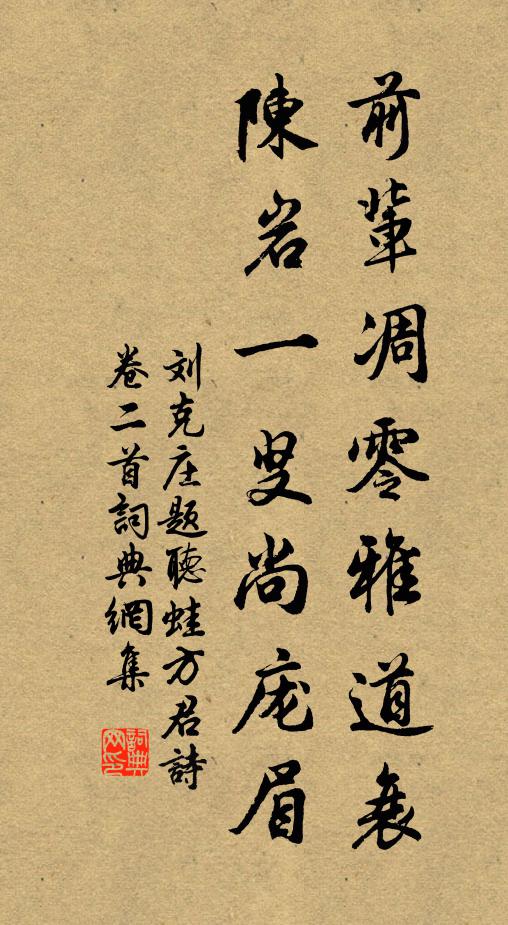 前輩凋零雅道衰
陳岩一叟尚庞眉
刘克庄題聽蛙方君詩
卷二首詞典網集
詞典网印